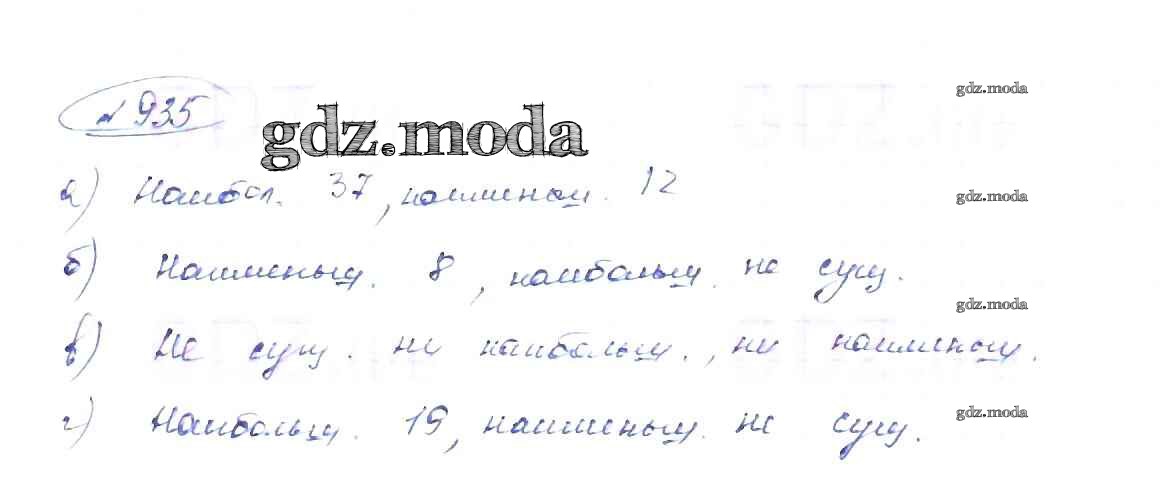 № 935
gdz.moda
gdz.moda
а) Наибол. 37, наименьш. 12
gdz.moda
б) Наименьш. 8, наибольш. не сущ.
gdz.moda
в) Не сущ. ни наибольш., ни наименьш.
г) Наибольш. 19, наименьш. не сущ.
gdz.moda